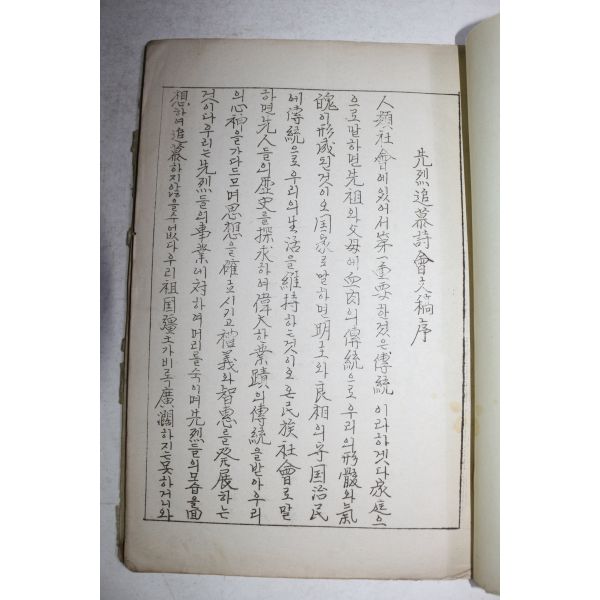 先烈追慕詩會文稿序
人類社會에있어서第一重要한것은傳統이라하겟다家庭으
으로말하면先祖와父母에血肉의傳統으로우리의形骸와氣
魄이形成된것이오国家로말하면明主와良相의导国治民
에傳統으로우리의生活을維持하는것이오民族社會로말
하면先人들의歷史를探求하여偉大한業蹟의傳統을받아우리
의心神을가다듬으며思想을確立시기고禮義와智惠를発展하는
것이다우리는先烈들의事業에対하여머리를숙이며先烈들의모습을面
想하여追慕하지않을수없다우리祖国疆土가비록廣濶하지는못하거니와